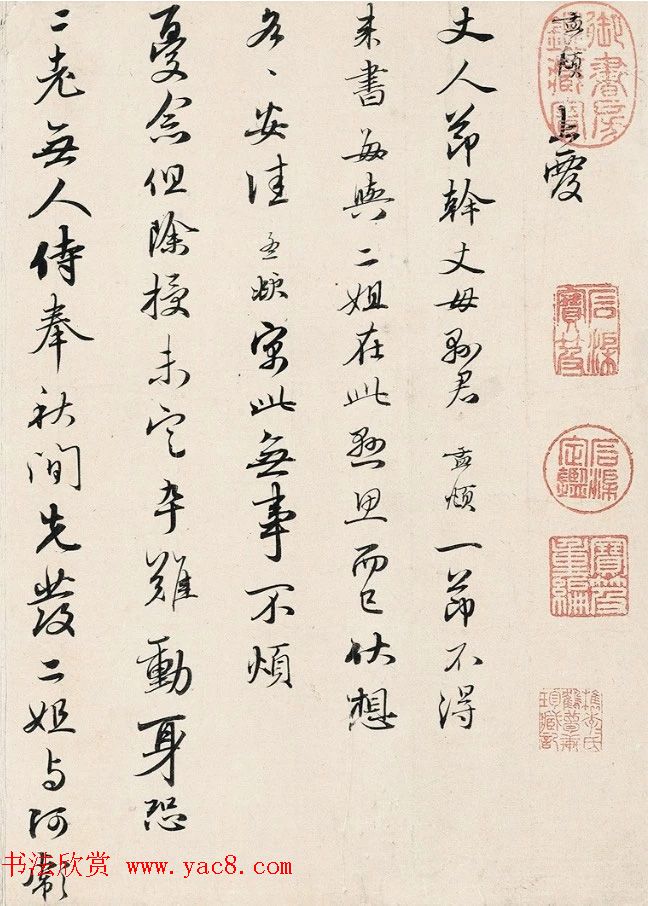 孟頫上覆
丈人節幹丈母縣君孟頫一節不得
来書每與二姐在此懸思而已伏想
各〻安佳孟頫寓此無事不煩
憂念但除授未定卒難動身恐
二老無人侍奉秋間先發二姐与阿彪
御書房鑑藏寶
石渠寶笈
石渠定鑑
寶笈重編
鶴夢軒珍藏記
书法欣赏 www.yac8.com